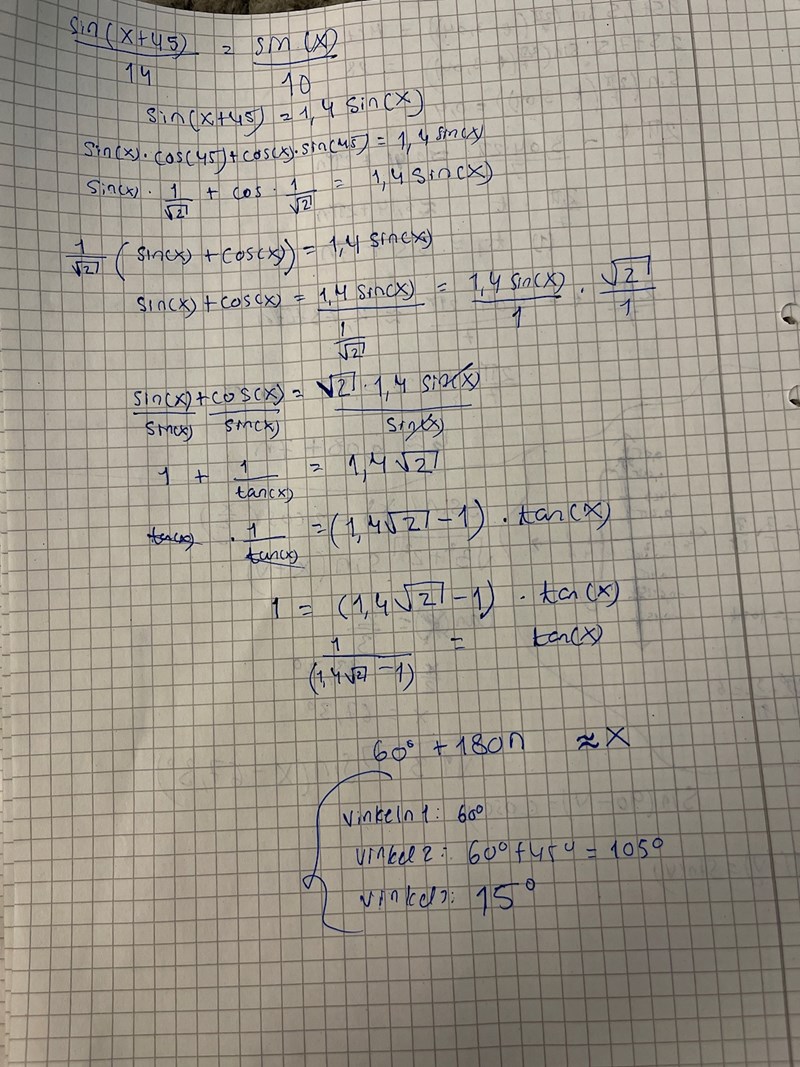 sin(x+45)/14 = sin(x)/10
sin(x+45) = 1,4 sin(x)
sin(x) · cos(45) + cos(x) · sin(45) = 1,4 sin(x)
sin(x) · 1/√2 + cos · 1/√2 = 1,4 sin(x)
1/√2 (sin(x) + cos(x)) = 1,4 sin(x)
sin(x) + cos(x) = 1,4 sin(x)/(1/√2) = 1,4 sin(x)/1 · √2/1
sin(x)/sin(x) + cos(x)/sin(x) = √2 · 1,4 sin(x)/sin(x)
1 + 1/tan(x) = 1,4√2
tan(x) · 1/tan(x) = (1,4√2 - 1) · tan(x)
1 = (1,4√2 - 1) · tan(x)
1/(1,4√2 - 1) = tan(x)
60° + 180n ≈ x
vinkeln 1: 60°
vinkel 2: 60° + 45° = 105°
vinkel 3: 15°